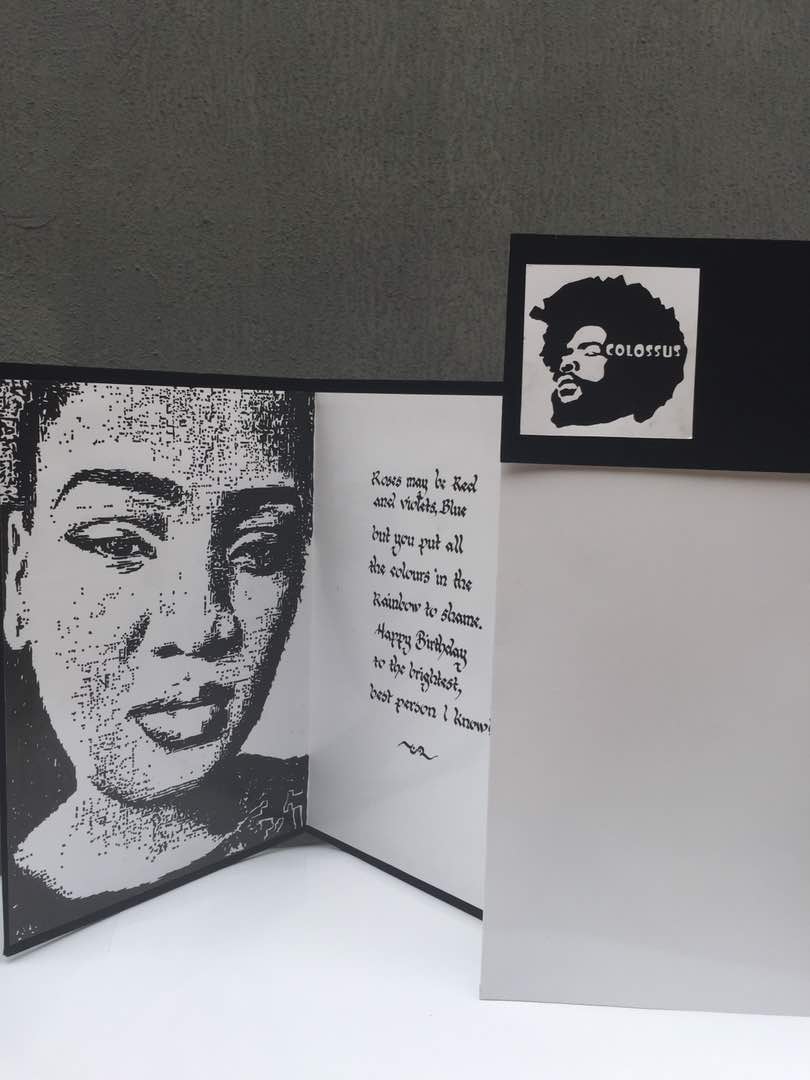 Roses may be Red
and violets, Blue
but you put all
the colours in the
Rainbow to shame.
Happy Birthday
to the brightest,
best person I know!
COLOSSUS